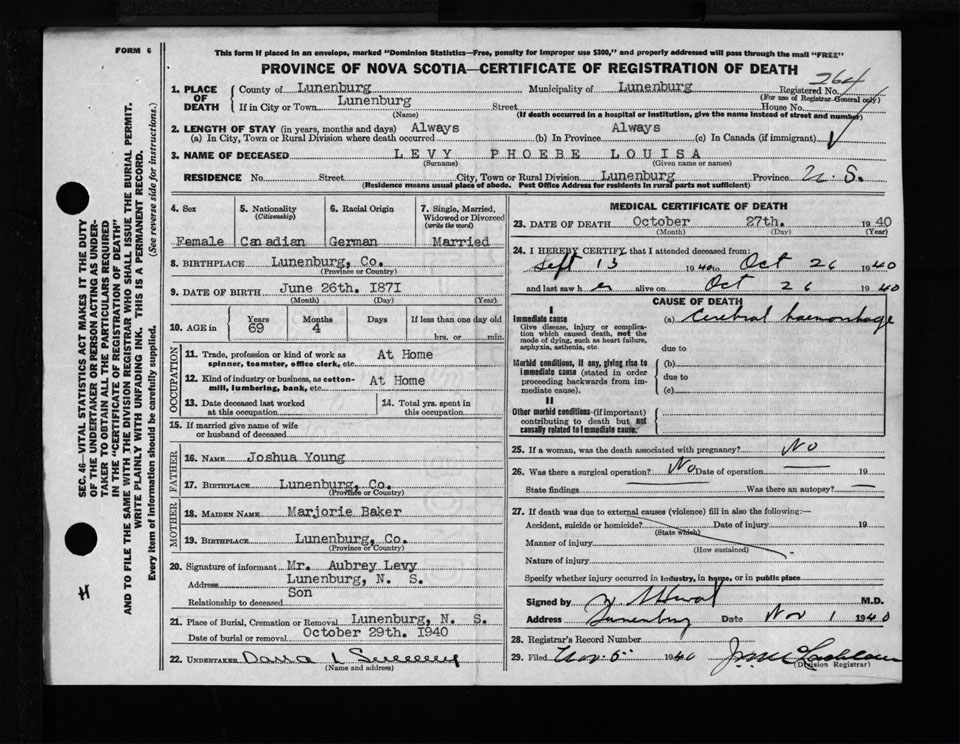 FORM 6
This form if placed in an envelope, marked "Dominion Statistics—Free, penalty for improper use $300," and properly addressed will pass through the mail "FREE"
PROVINCE OF NOVA SCOTIA—CERTIFICATE OF REGISTRATION OF DEATH
SEC. 46—VITAL STATISTICS ACT MAKES IT THE DUTY
OF THE UNDERTAKER OR PERSON ACTING AS UNDER-
TAKER TO OBTAIN ALL THE PARTICULARS REQUIRED
IN THE "CERTIFICATE OF REGISTRATION OF DEATH"
AND TO FILE THE SAME WITH THE DIVISION REGISTRAR WHO SHALL ISSUE THE BURIAL PERMIT.
WRITE PLAINLY WITH UNFADING INK. THIS IS A PERMANENT RECORD.
Every item of information should be carefully supplied. (See reverse side for instructions.)
H
1. PLACE OF DEATH
County of Lunenburg Municipality of Lunenburg Registered No. 264
(For use of Registrar-General only)
If in City or Town Lunenburg Street House No.
(Name) (If death occurred in a hospital or institution, give the name instead of street and number)
2. LENGTH OF STAY (in years, months and days) Always Always
(a) In City, Town or Rural Division where death occurred (b) In Province (c) In Canada (if immigrant)
3. NAME OF DECEASED LEVY PHOEBE LOUISA
(Surname) (Given name or names)
RESIDENCE No. Street City, Town or Rural Division Lunenburg Province N. S.
(Residence means usual place of abode. Post Office Address for residents in rural parts not sufficient)
4. Sex 5. Nationality (Citizenship) 6. Racial Origin 7. Single, Married, Widowed or Divorced (write the word)
Female Canadian German Married
8. BIRTHPLACE Lunenburg, Co.
(Province or Country)
9. DATE OF BIRTH June 26th. 1871
(Month) (Day) (Year)
10. AGE in Years Months Days If less than one day old
69 4 hrs. or min.
OCCUPATION
11. Trade, profession or kind of work as spinner, teamster, office clerk, etc. At Home
12. Kind of industry or business, as cotton-mill, lumbering, bank, etc. At Home
13. Date deceased last worked at this occupation
14. Total yrs. spent in this occupation
15. If married give name of wife or husband of deceased
FATHER
16. NAME Joshua Young
17. BIRTHPLACE Lunenburg, Co.
(Province or Country)
MOTHER
18. MAIDEN NAME Marjorie Baker
19. BIRTHPLACE Lunenburg, Co.
(Province or Country)
20. Signature of informant Mr. Aubrey Levy
Address Lunenburg, N. S.
Relationship to deceased Son
21. Place of Burial, Cremation or Removal Lunenburg, N. S.
Date of burial or removal October 29th. 1940
22. UNDERTAKER
(Name and address)
MEDICAL CERTIFICATE OF DEATH
23. DATE OF DEATH October 27th. 1940
(Month) (Day) (Year)
24. I HEREBY CERTIFY that I attended deceased from:
Sept 13 1940 to Oct 26 1940
and last saw her alive on Oct 26 1940
CAUSE OF DEATH
I
Immediate cause (a) Cerebral haemorrhage
Give disease, injury or complication which caused death, not the mode of dying, such as heart failure, asphyxia, asthenia, etc.
due to
Morbid conditions, if any, giving rise to immediate cause (stated in order proceeding backwards from immediate cause).
(b)
due to
(c)
II
Other morbid conditions (if important) contributing to death but not causally related to immediate cause.
25. If a woman, was the death associated with pregnancy? No
26. Was there a surgical operation? No Date of operation 19
State findings Was there an autopsy?
27. If death was due to external causes (violence) fill in also the following:—
Accident, suicide or homicide? Date of injury 19
(State which)
Manner of injury
(How sustained)
Nature of injury
Specify whether injury occurred in industry, in home, or in public place
Signed by M.D.
Address Lunenburg Date Nov 1 1940
28. Registrar's Record Number
29. Filed Nov. 5 1940
(Division Registrar)